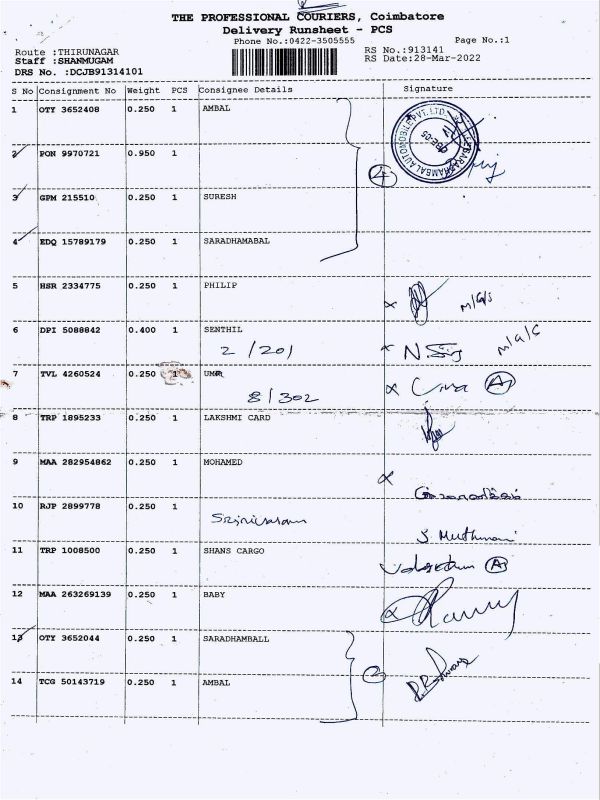 THE PROFESSIONAL COURIERS, Coimbatore
Delivery Runsheet - PCS
Phone No.:0422-3505555
Page No.:1
Route :THIRUNAGAR
Staff :SHANMUGAM
DRS No. :DCJB91314101
RS No.:913141
RS Date:28-Mar-2022
S No Consignment No Weight PCS Consignee Details Signature
1 OTY 3652408 0.250 1 AMBAL
2 PON 9970721 0.950 1
4
3 GPM 215510 0.250 1 SURESH
4 EDQ 15789179 0.250 1 SARADHAMABAL
5 HSR 2334775 0.250 1 PHILIP
6 DPI 5088842 0.400 1 SENTHIL
2/201
7 TVL 4260524 0.250 1 UMA
8/302 Uma A
8 TRP 1895233 0.250 1 LAKSHMI CARD
9 MAA 282954862 0.250 1 MOHAMED
10 RJP 2899778 0.250 1
Srinivasan
S. Muthumani
11 TRP 1008500 0.250 1 SHANS CARGO
A
12 MAA 263269139 0.250 1 BABY
13 OTY 3652044 0.250 1 SARADHAMBALL
2
14 TCG 50143719 0.250 1 AMBAL